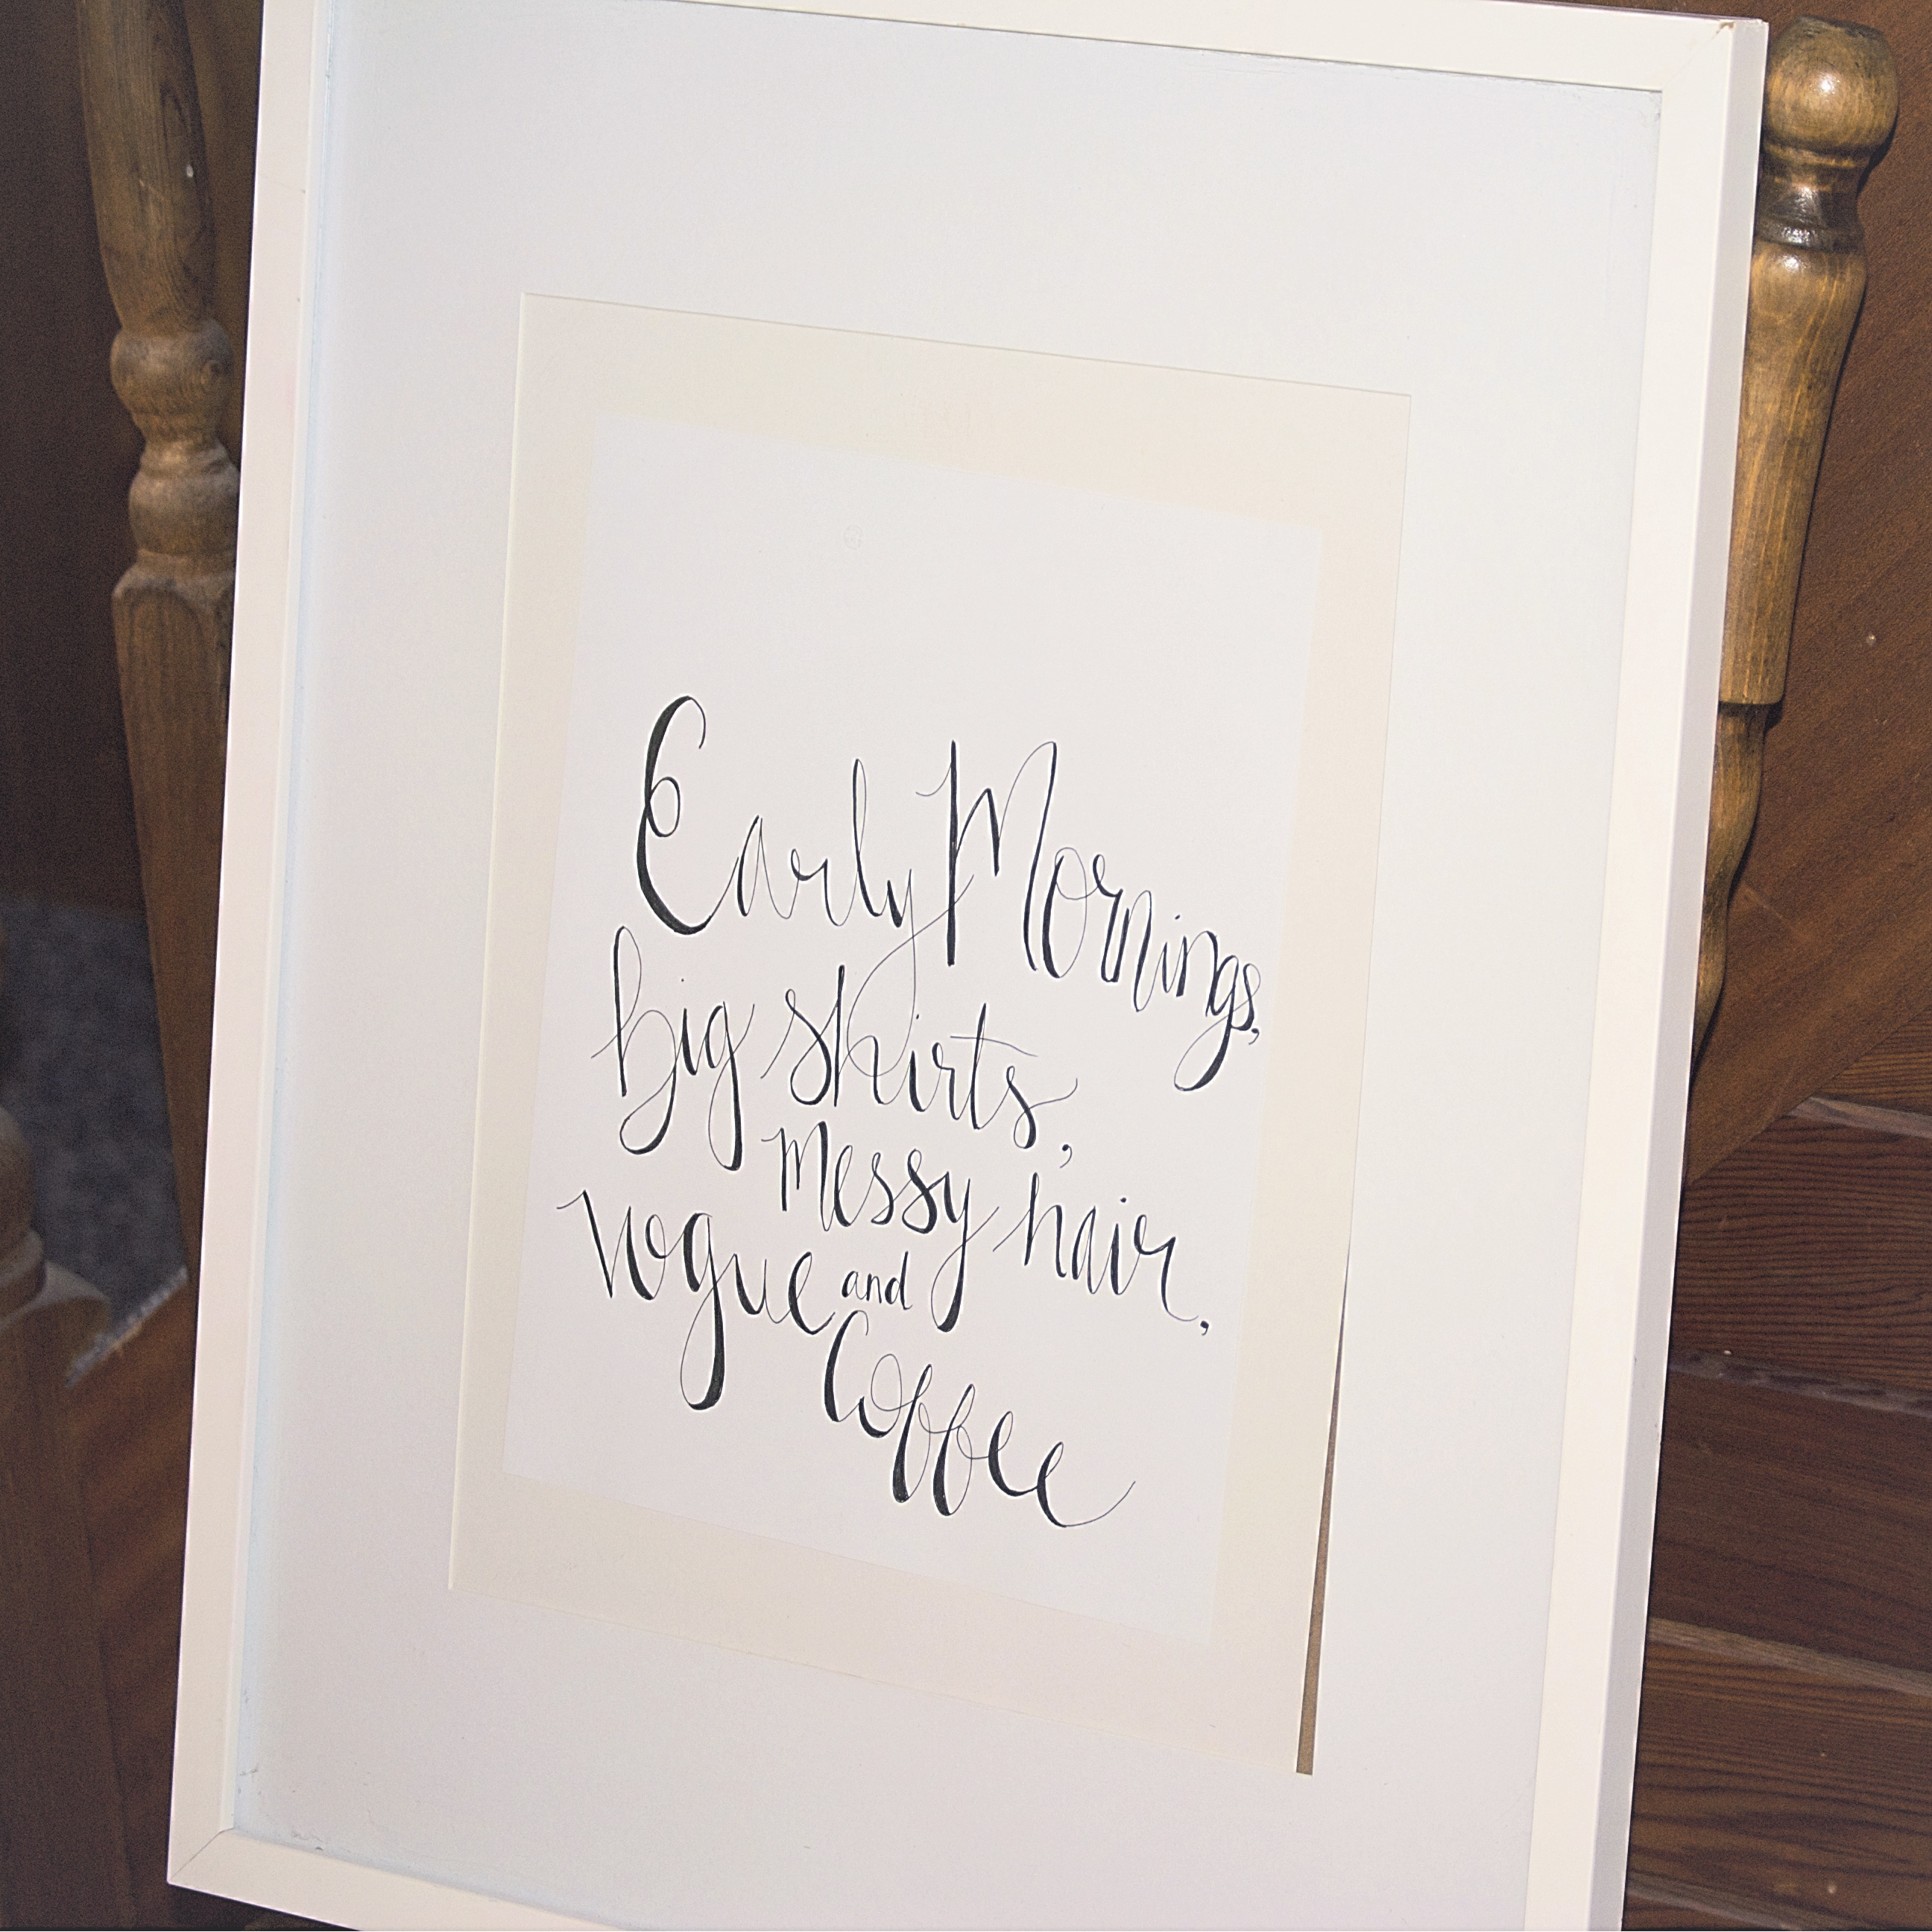 Early Mornings,
big shirts,
Messy hair,
Vogue and
Coffee